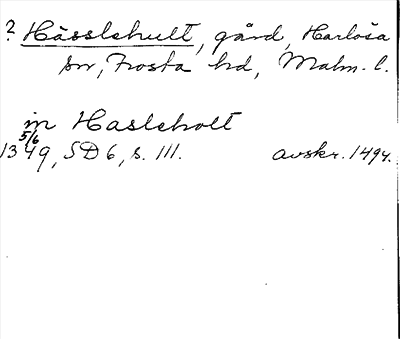 ? Hässlehult, gård, Harlösa
sn, Frosta hd, Malm. l.
in Hasleholt
5/6
1349, SD 6, s. 111. avskr. 1494.